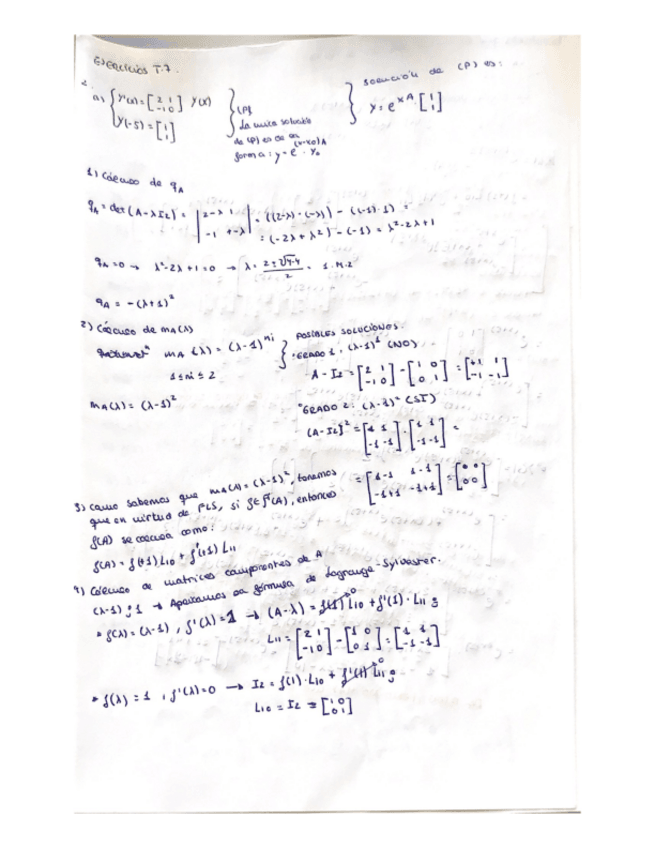 Ejercicios T.7.
2.
a) { y'(x) = [2 1; -1 0] y(x)
y(-5) = [1; 1] } (P)
La única solución
de (P) es de la
forma: y = e^(x-x0)A · y0
solución de (P) es:
y = e^xA · [1; 1]
1) Cálculo de qA
qA = det (A - λI2) = |2-λ 1; -1 -λ| = ((2-λ)·(-λ)) - ((-1)·1) =
= (-2λ + λ²) - (-1) = λ² - 2λ + 1
qA = 0 → λ² - 2λ + 1 = 0 → λ = (2 ± √4-4)/2 = 1. M.2
qA = -(λ+1)²
2) Cálculo de mA(λ)
mA(λ) = (λ-1)^ni
1 ≤ ni ≤ 2
mA(λ) = (λ-1)²
POSIBLES SOLUCIONES.
GRADO 1: (λ-1)¹ (NO)
A - I2 = [2 1; -1 0] - [1 0; 0 1] = [+1 1; -1 -1]
"GRADO 2: (λ-1)² (SI)
(A-I2)² = [1 1; -1 -1] · [1 1; -1 -1] =
= [1-1 1-1; -1+1 -1+1] = [0 0; 0 0]
3) Como sabemos que mA(λ) = (λ-1)², tenemos
que en virtud de PLS, si f∈F(A), entonces
f(A) se calcula como:
f(A) = f(+1) L10 + f'(+1) L11
4) Cálculo de matrices componentes de A
(λ-1); 1 → Aplicamos la fórmula de Lagrange-Sylvester.
• f(λ) = (λ-1), f'(λ) = 1 → (A-λ) = f(1) L10 + f'(1) · L11;
L11 = [2 1; -1 0] - [1 0; 0 1] = [1 1; -1 -1]
• f(λ) = 1, f'(λ) = 0 → I2 = f(1) · L10 + f'(1) L11;
L10 = I2 = [1 0; 0 1]